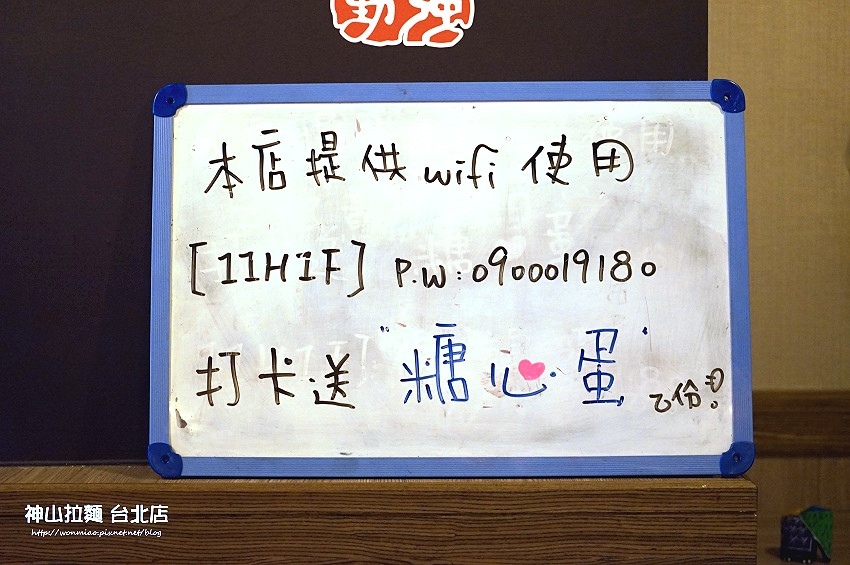 本店提供wifi使用
[11H1F] P.W:0900019180
打卡送"糖心蛋"乙份!
神山拉麵 台北店
http://wonmiao.pixnet.net/blog